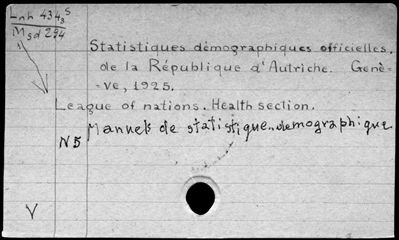 Lnh 434₃S
Msd 294
Statistiques démographiques officielles.
de la République d'Autriche. Genè=
=ve, 1925.
League of nations. Health section.
N5 Manuels de statistique démographique.
V